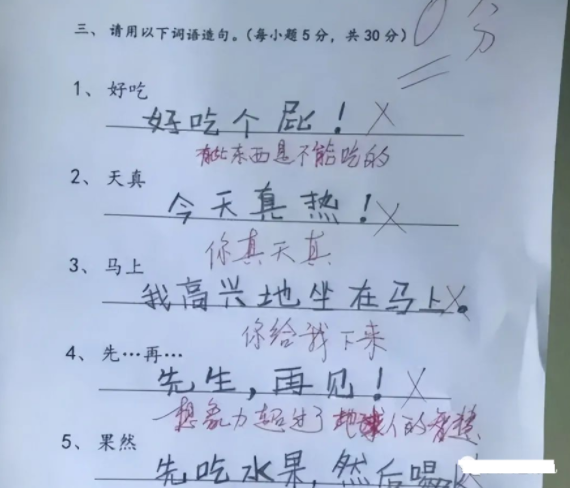 三、请用以下词语造句。(每小题5分，共30分)
0分
1、好吃
好吃个屁！
有些东西是不能吃的
2、天真
今天真热！
你真天真
3、马上
我高兴地坐在马上。
你给我下来
4、先…再…
先生，再见！
想象力超过了地球人的智慧
5、果然
先吃水果，然后喝水